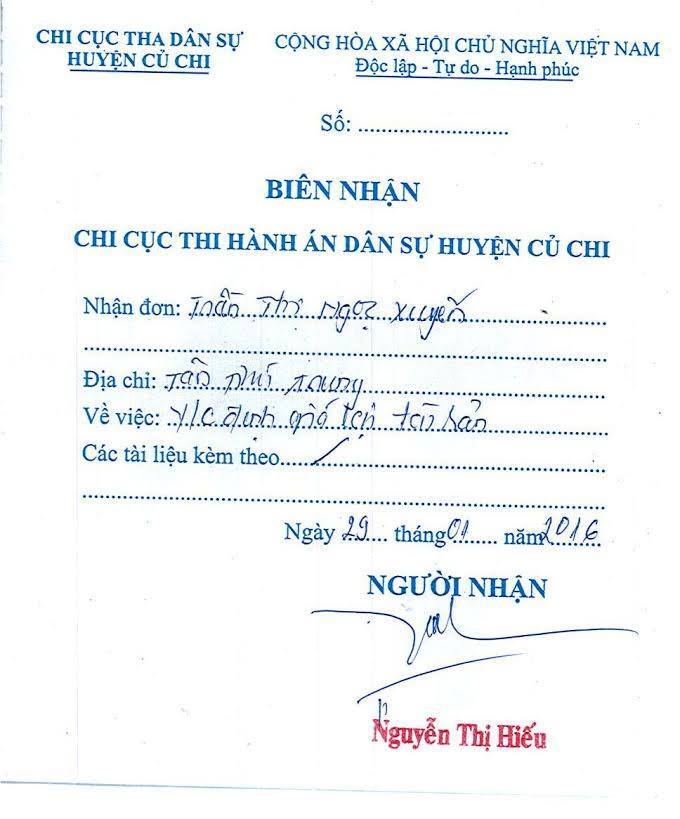 CHI CỤC THA DÂN SỰ
HUYỆN CỦ CHI
CỘNG HÒA XÃ HỘI CHỦ NGHĨA VIỆT NAM
Độc lập - Tự do - Hạnh phúc
Số: ..........................
BIÊN NHẬN
CHI CỤC THI HÀNH ÁN DÂN SỰ HUYỆN CỦ CHI
Nhận đơn: Trần Thị Ngọc Xuyến
Địa chỉ: Tân Phú Trung
Về việc: Y/c định giá lại tài sản
Các tài liệu kèm theo
Ngày 29 tháng 01 năm 2016
NGƯỜI NHẬN
Nguyễn Thị Hiếu